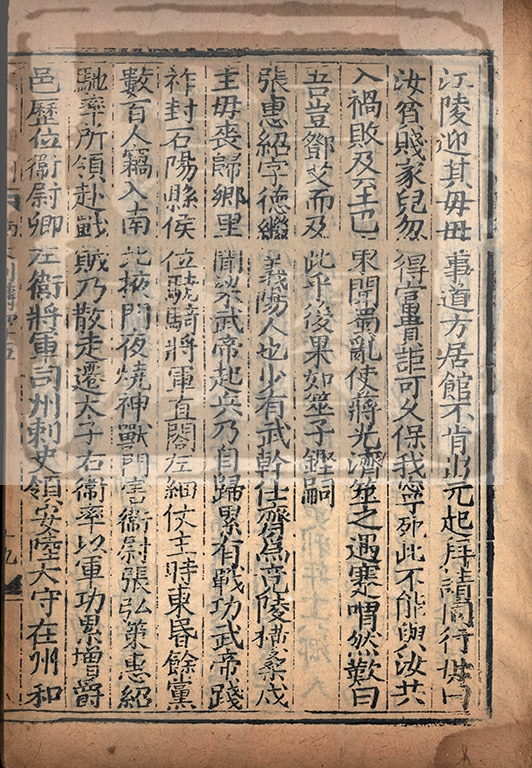 江陵迎其母母事道方居館不肯出元起拜請同行母曰
汝貧賤家兒忽得富貴詎可久保我寧死此不能與汝共
入禍敗及至巴東聞蜀亂使蔣光濟筮之遇蹇喟然歎曰
吾豈鄧艾而及此乎後果如筮子鏗嗣
張惠紹字德繼義陽人也少有武幹仕齊爲竟陵橫桑戍
主母喪歸鄉里聞梁武帝起兵乃自歸累有戰功武帝踐
祚封石陽縣侯位驍騎將軍直閤左細仗主時東昏餘黨
數百人竊入南北掖門夜燒神獸門害衛尉張弘策惠紹
馳率所領赴戰賊乃散走遷大子右衛率以軍功累增爵
邑歷位衛尉卿左衛將軍司州刺史領安陸大守在州和